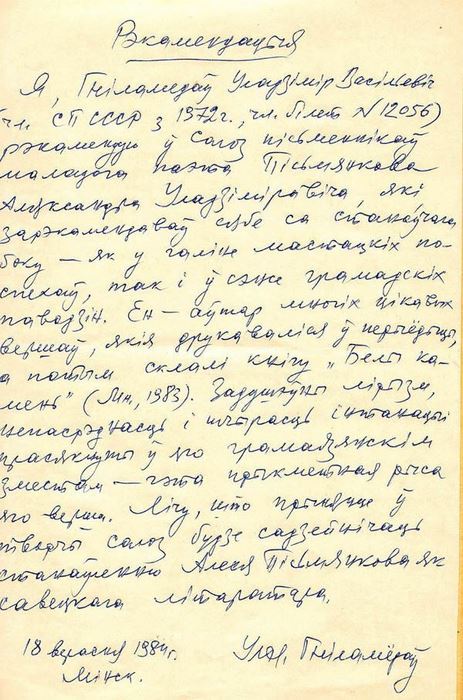 Рэкамендацыя
Я, Гніламёдаў Уладзімір Васільевіч
(чл. СП СССР з 1972 г., чл. білет N 12056)
рэкамендую ў Саюз пісьменнікаў
маладога паэта Пісьмянкова
Аляксандра Уладзіміравіча, які
зарэкамендаваў сябе са станоўчага
боку — як у галіне мастацкіх по-
спехаў, так і ў сэнсе грамадскіх
паводзін. Ён — аўтар многіх цікавых
вершаў, якія друкаваліся ў перыёдыцы,
а потым склалі кнігу „Белы ка-
мень" (Мн, 1983). Задушэўны лірызм,
непасрэднасць і шчырасць інтанацыі
прасякнуты ў яго грамадзянскім
зместам — гэта прыкметная рыса
яго верша. Лічу, што прыняцце ў
творчы саюз будзе садзейнічаць
станаўленню Алеся Пісьмянкова як
савецкага літаратара.
18 верасня 1984 г. Улад. Гніламёдаў
Мінск.